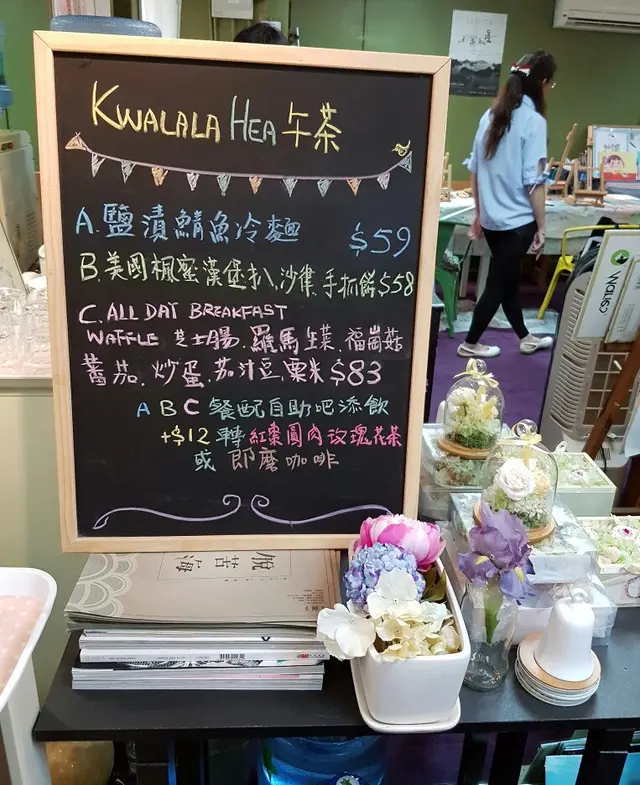 KWALALA HEA 午茶
A.鹽漬鯖魚冷麵 $59
B.美國楓蜜漢堡扒.沙律.手抓餅$58
C.ALL DAY BREAKFAST
WAFFLE 芝士腸.羅馬生菜.福崗菇
蕃茄.炒蛋.茄汁豆.粟米 $83
A B C 餐配自助吧添飲
+$12 轉 紅棗圓肉玫瑰花茶
或 即磨咖啡